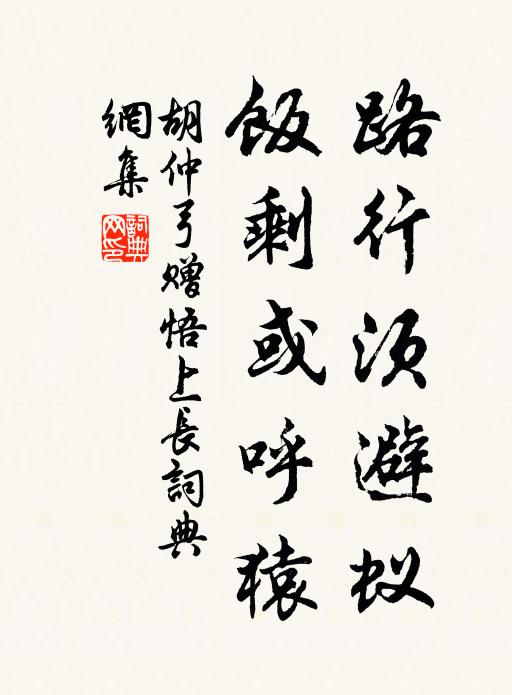 路行须避蚁
飯剩或呼猿
胡仲弓赠悟上長詞典
網集
詞典網印